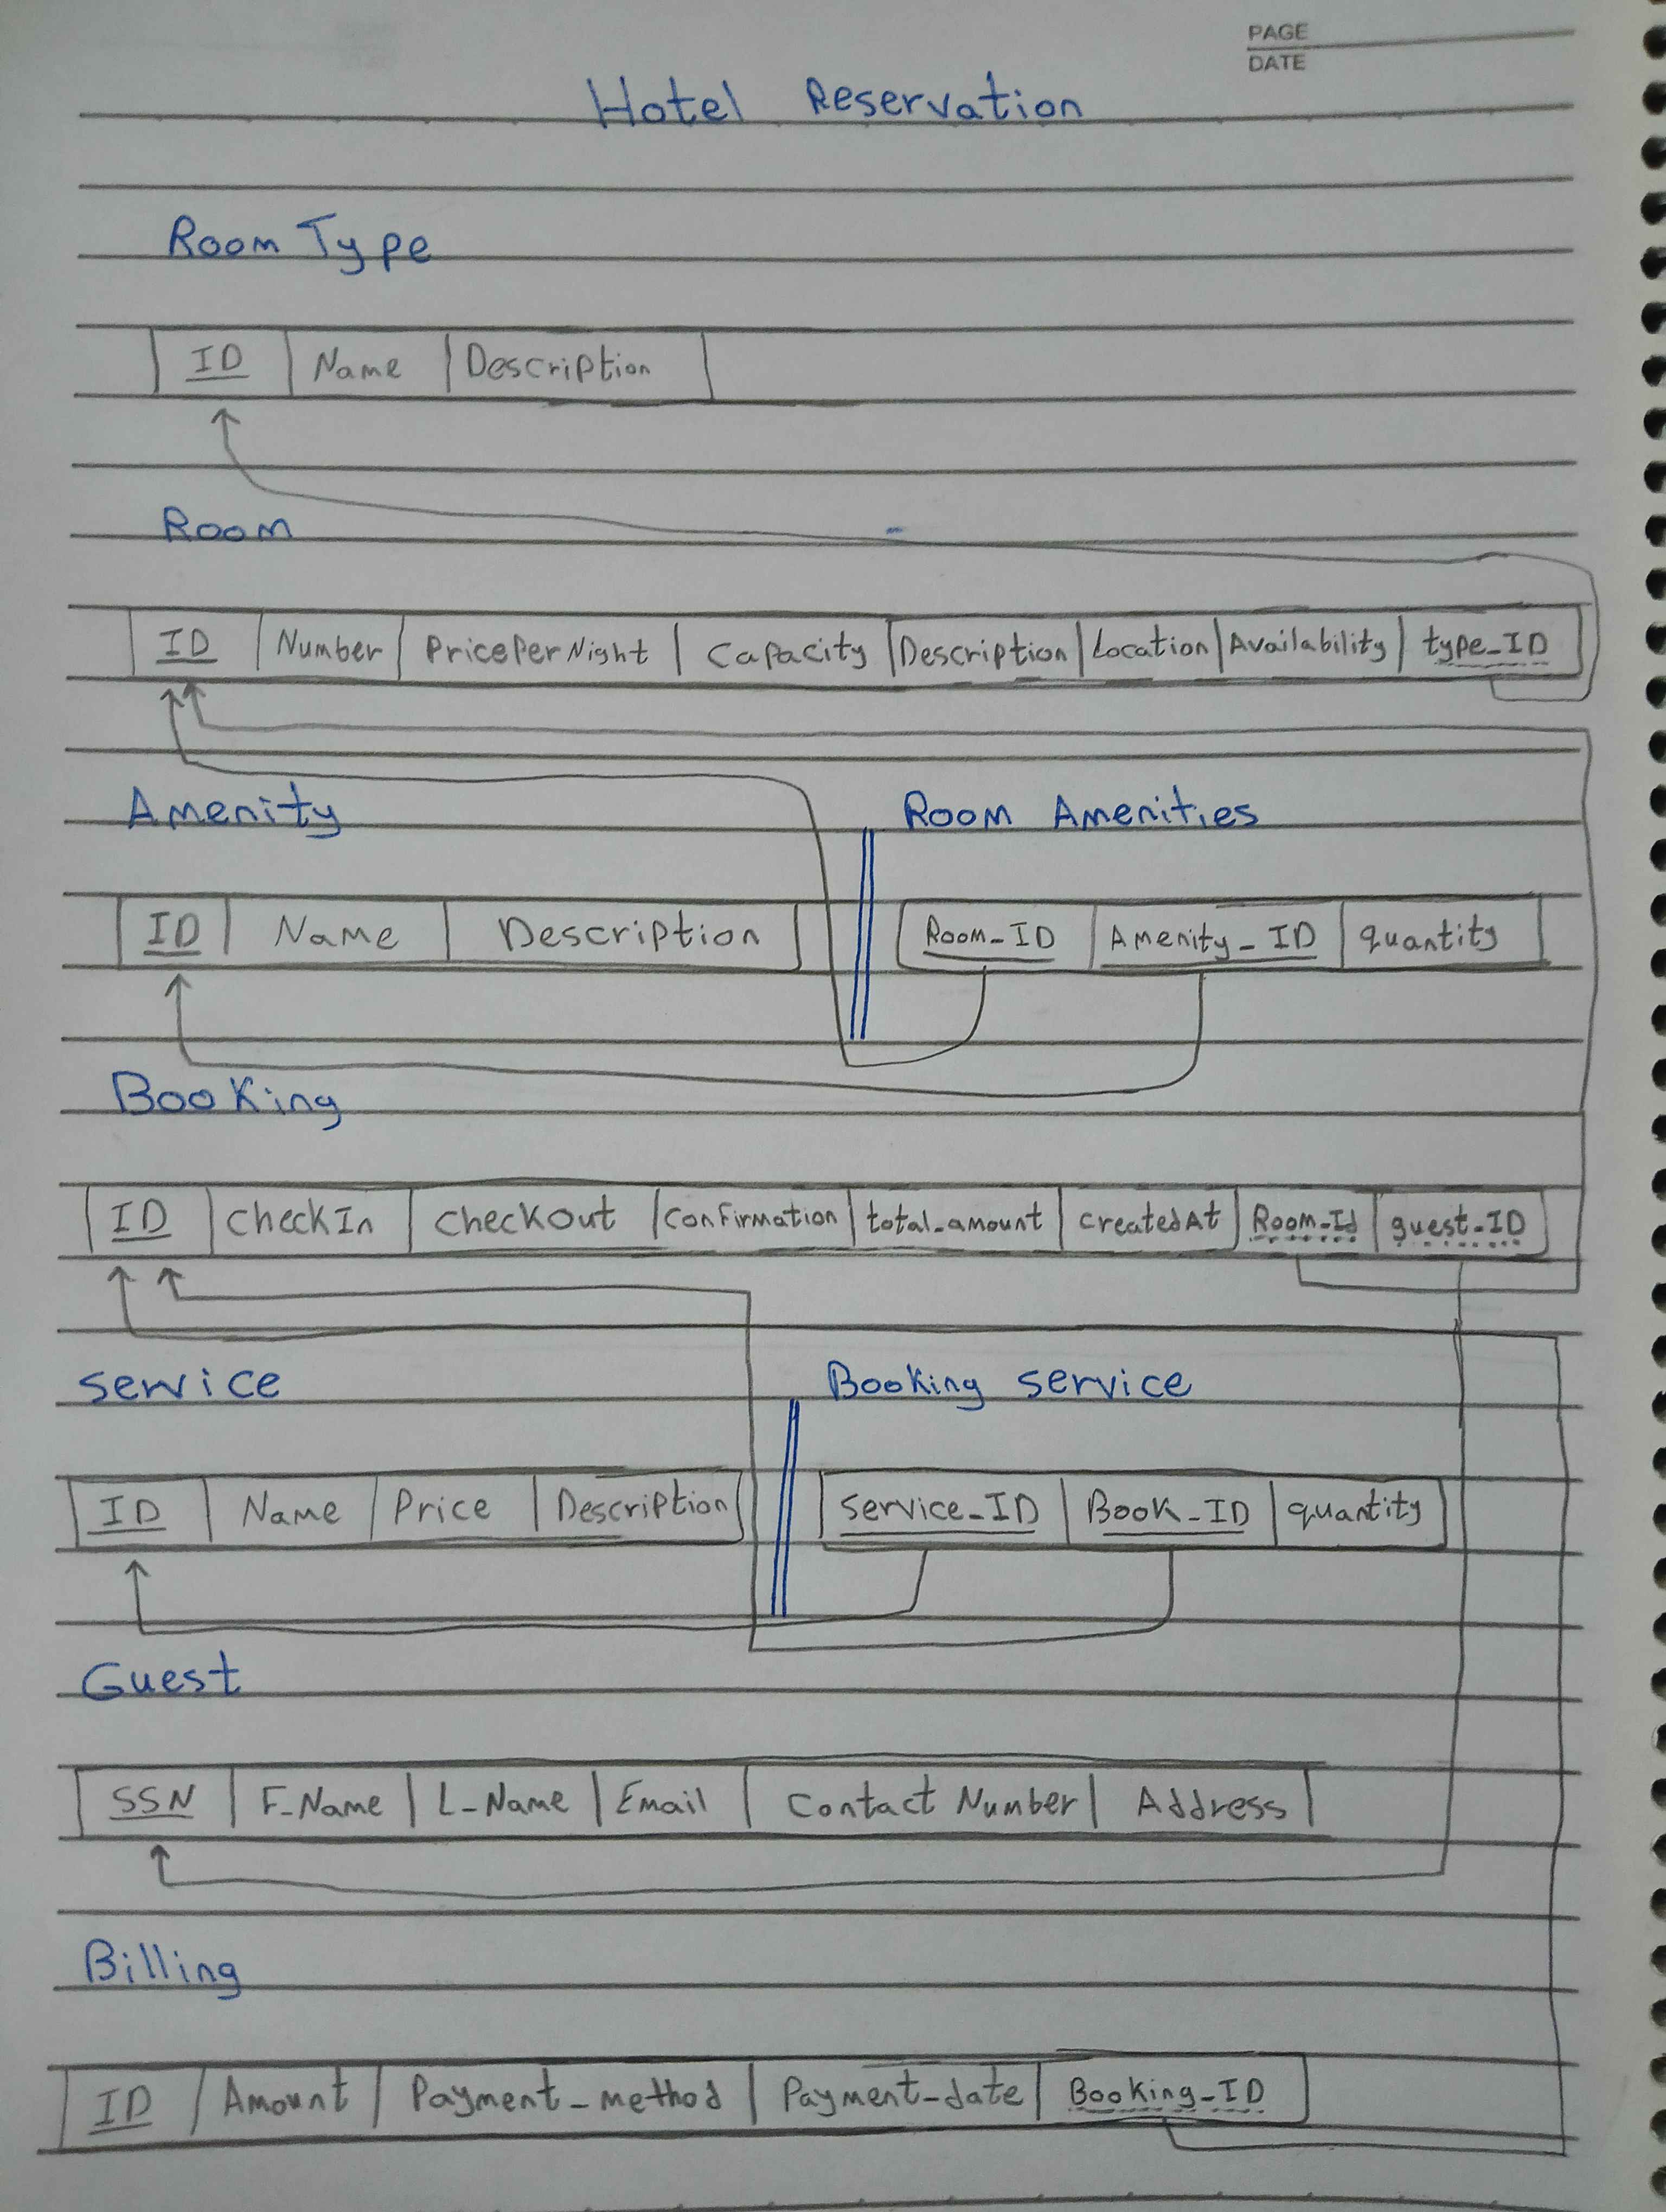 PAGE
DATE
Hotel Reservation
Room Type
ID Name Description
Room
ID Number PricePerNight Capacity Description Location Availability type_ID
Amenity Room Amenities
ID Name Description Room_ID Amenity_ID quantity
Booking
ID checkIn checkout Confirmation total_amount createdAt Room_Id guest_ID
service Booking service
ID Name Price Description service_ID Book_ID quantity
Guest
SSN F_Name L_Name Email Contact Number Address
Billing
ID Amount Payment_method Payment_date Booking_ID